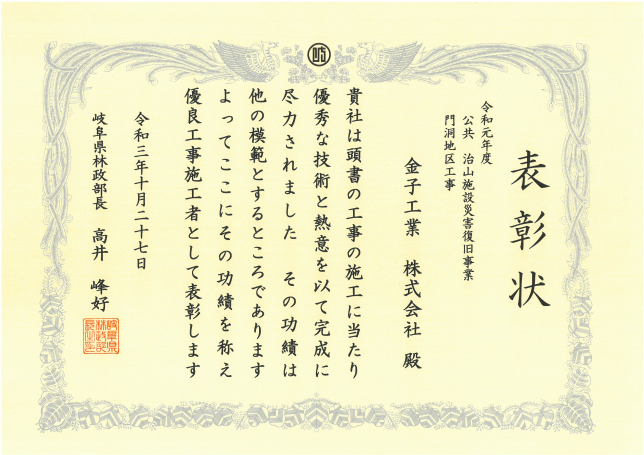 表彰状
令和元年度
公共 治山施設災害復旧事業
門洞地区工事
金子工業 株式会社 殿
貴社は頭書の工事の施工に当たり
優秀な技術と熱意を以て完成に
尽力されました その功績は
他の模範とするところであります
よってここにその功績を称え
優良工事施工者として表彰します
令和三年十月二十七日
岐阜県林政部長 高井 峰好